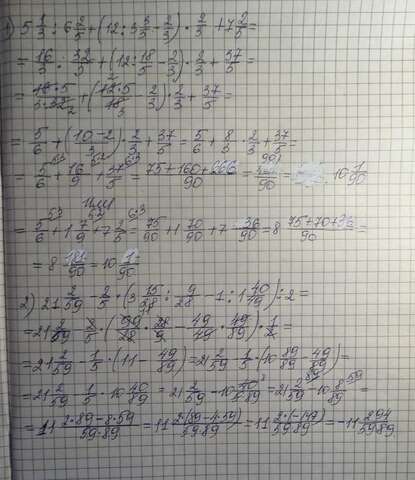 1) 5 1/3 : 6 2/5 + (12 : 3 3/5 - 2/3) · 2/3 + 7 2/5 =
= 16/3 : 32/5 + (12 : 18/5 - 2/3) · 2/3 + 37/5 =
= 16·5/3·32 2 + (12·5/18 3 - 2/3) · 2/3 + 37/5 =
= 5/6 + (10-2/3) · 2/3 + 37/5 = 5/6 + 8/3 · 2/3 + 37/5 =
= 5/6 + 16/9 + 37/5 = 75+160+666/90 = 901/90 = 10 1/90
или
= 5/6 + 1 7/9 + 7 2/5 = 75/90 + 1 70/90 + 7 36/90 = 8 75+70+36/90 =
= 8 181/90 = 10 1/90
2) 21 2/59 - 2/5 · (3 15/28 : 9/28 - 1 : 1 40/49) : 2 =
= 21 2/59 - 2/5 · (99/28 · 28/9 - 49/49 · 49/89) · 1/2 =
= 21 2/59 - 1/5 · (11 - 49/89) = 21 2/59 - 1/5 · (10 89/89 - 49/89) =
= 21 2/59 - 1/5 · 10 40/89 = 21 2/59 - 10 40/5·89 = 21 2/59 - 10 8/89 =
= 11 2·89-8·59/59·89 = 11 2·(89-4·59)/59·89 = 11 2·(-147)/59·89 = -11 294/59·89